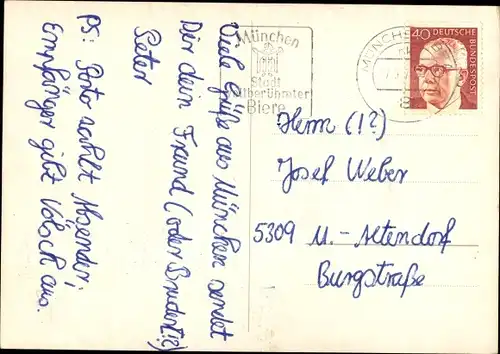 Viele Grüße aus München sendet
Dir dein Freund (oder Bruder!?)
Peter
PS: Porto zahlt Absender;
Empfänger gibt
aus.
München
Stadt
weltberühmter
Biere
MÜNCHEN
40 DEUTSCHE
BUNDESPOST
Herrn (!?)
Josef Weber
5309 M.-Altendorf
Burgstraße